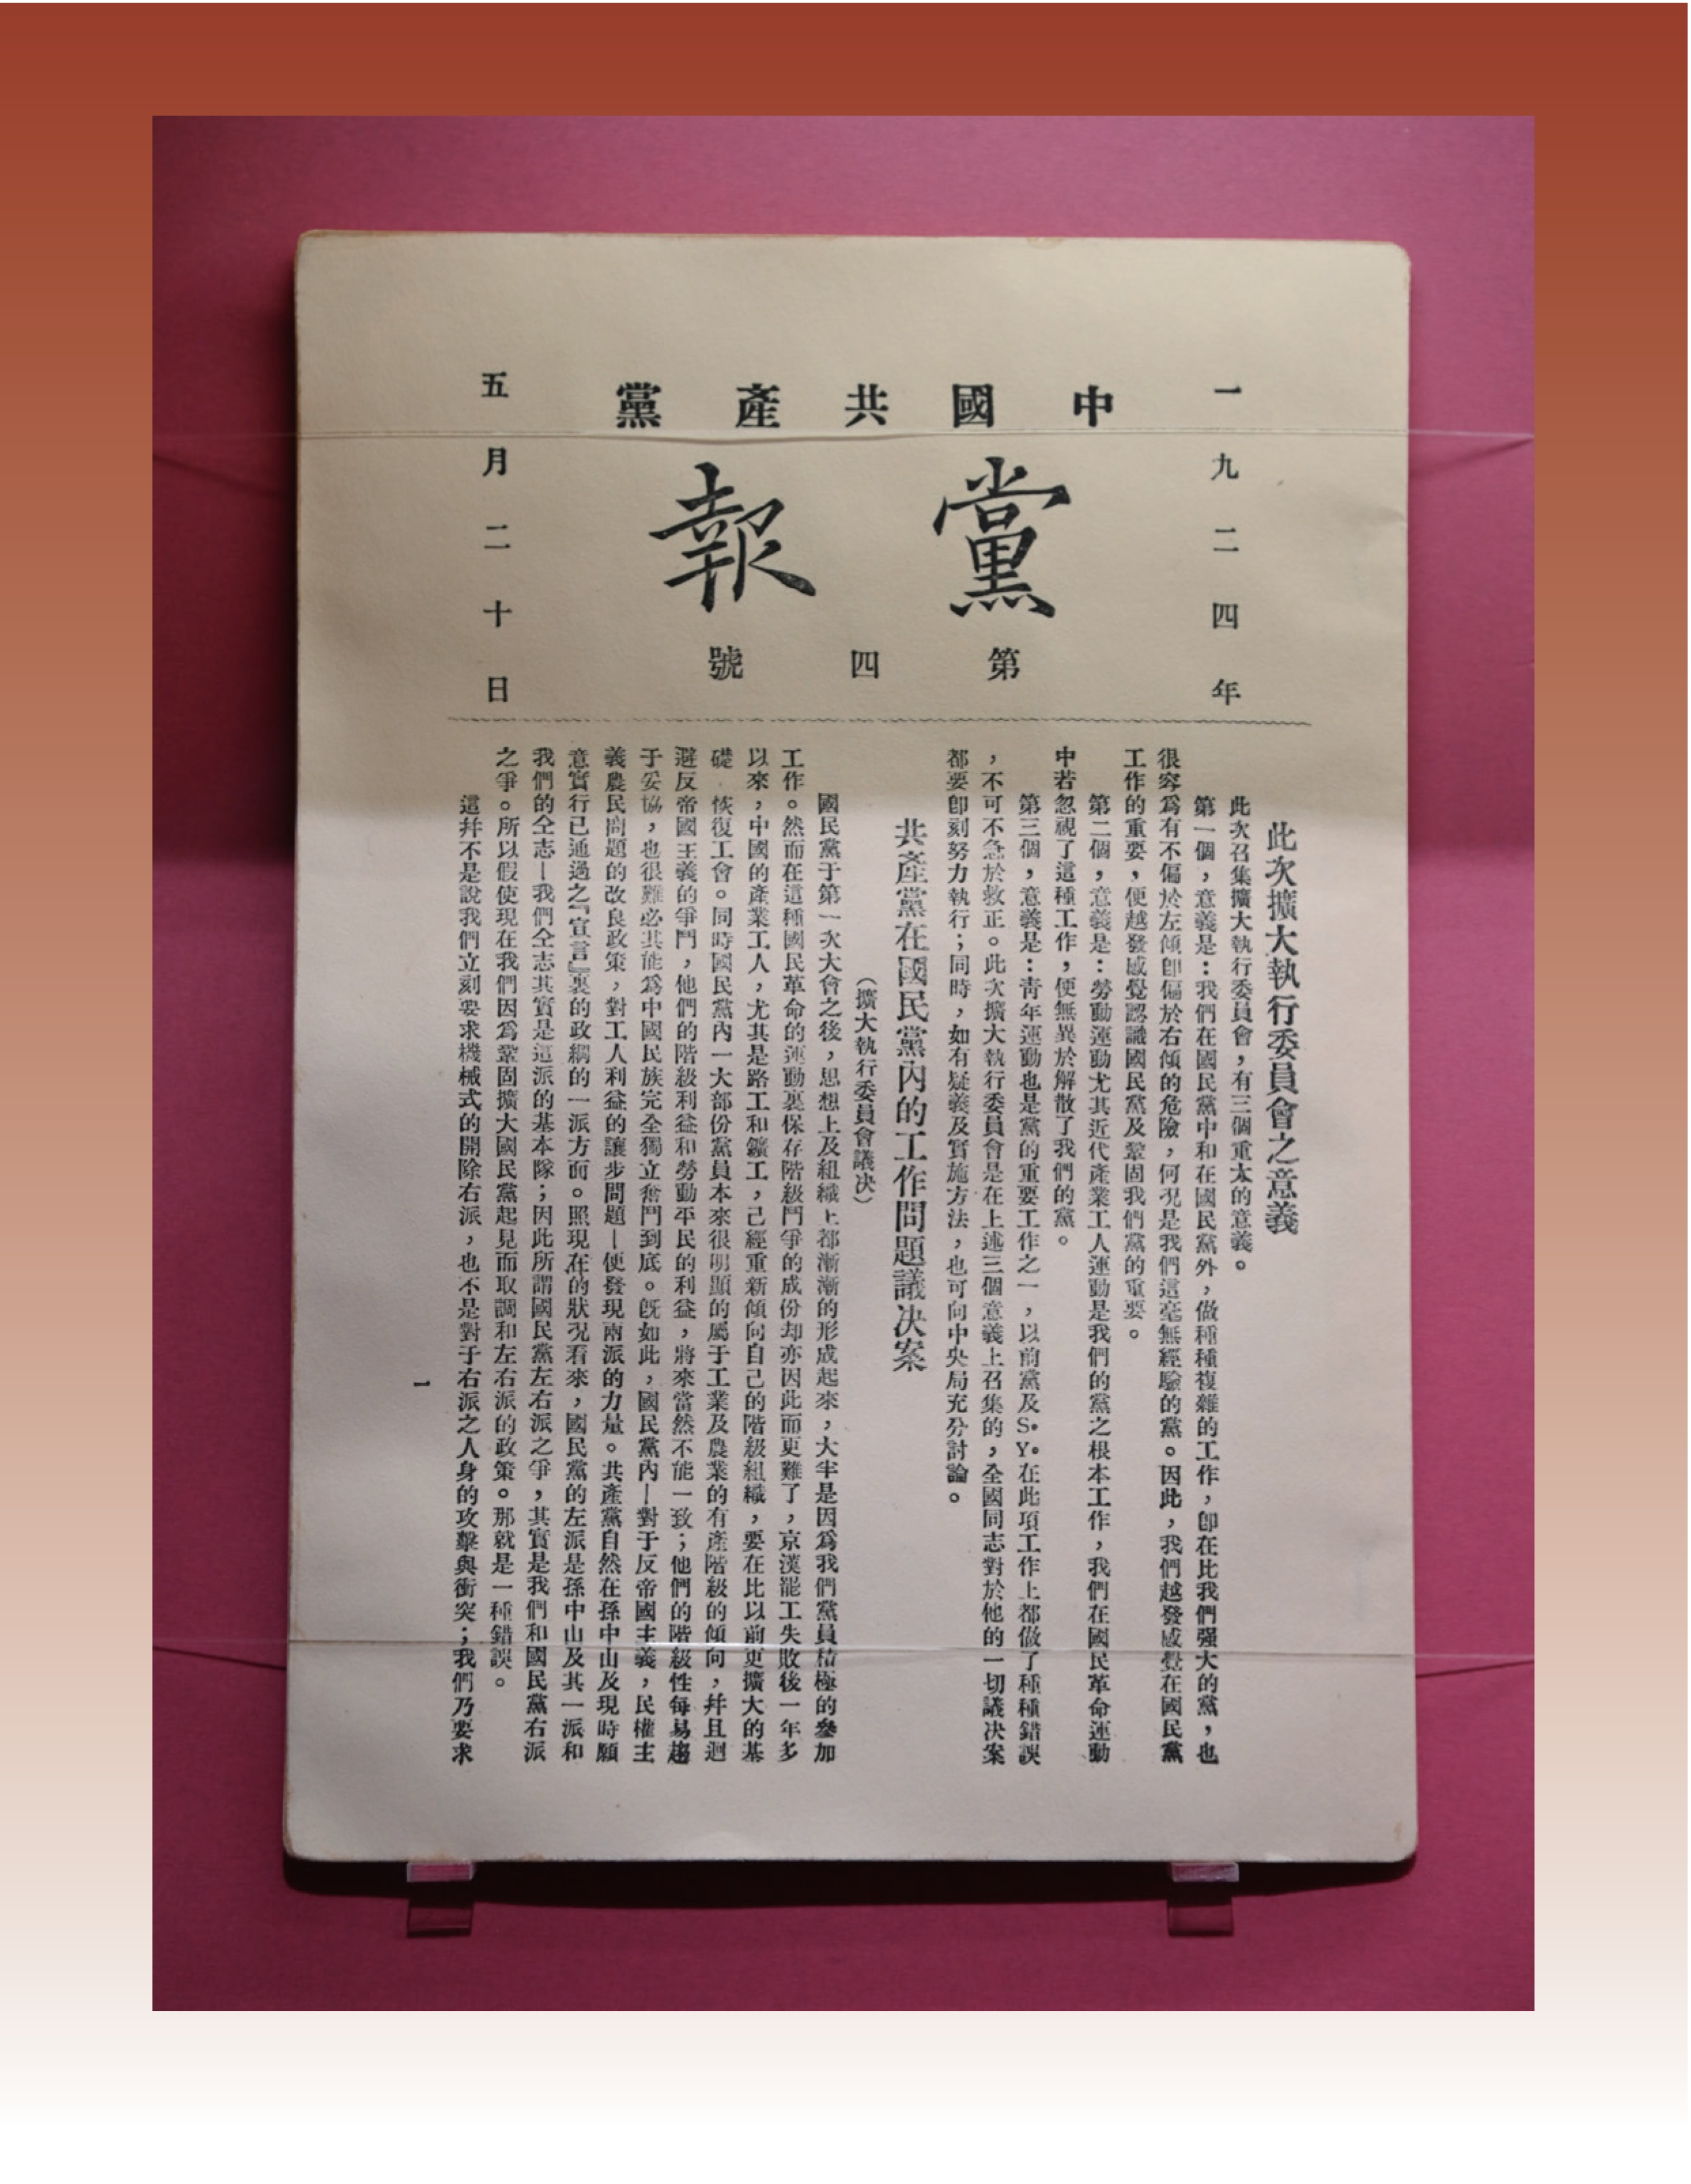 一九二四年
中國共產黨
黨報
第四號
五月二十日
此次擴大執行委員會之意義
此次召集擴大執行委員會，有三個重大的意義。
第一個，意義是：我們在國民黨中和在國民黨外，做種種複雜的工作，卽在比我們强大的黨，也
很容爲有不偏於左傾卽偏於右傾的危險，何况是我們這毫無經驗的黨。因此，我們越發感覺在國民黨
工作的重要，便越發感覺認識國民黨及鞏固我們黨的重要。
第二個，意義是：勞動運動尤其近代產業工人運動是我們的黨之根本工作，我們在國民革命運動
中若忽視了這種工作，便無異於解散了我們的黨。
第三個，意義是：靑年運動也是黨的重要工作之一，以前黨及S．Y．在此項工作上都做了種種錯誤
，不可不急於救正。此次擴大執行委員會是在上述三個意義上召集的，全國同志對於他的一切議决案
都要卽刻努力執行；同時，如有疑義及實施方法，也可向中央局充分討論。
共產黨在國民黨內的工作問題議决案
（擴大執行委員會議决）
國民黨于第一次大會之後，思想上及組織上都漸漸的形成起來，大半是因爲我們黨員積極的參加
工作。然而在這種國民革命的運動裏保存階級鬥爭的成份却亦因此而更難了，京漢罷工失敗後一年多
以來，中國的產業工人，尤其是路工和鑛工，己經重新傾向自己的階級組織，要在比以前更擴大的基
礎 恢復工會。同時國民黨內一大部份黨員本來很明顯的屬于工業及農業的有產階級的傾向，幷且迴
避反帝國主義的爭鬥，他們的階級利益和勞動平民的利益，將來當然不能一致；他們的階級性每易趨
于妥協，也很難必其能爲中國民族完全獨立奮鬥到底。旣如此，國民黨內—對于反帝國主義，民權主
義農民問題的改良政策，對工人利益的讓步問題—便發現兩派的力量。共產黨自然在孫中山及現時願
意實行已通過之『宣言』裏的政綱的一派方面。照現在的狀况看來，國民黨的左派是孫中山及其一派和
我們的仝志—我們仝志其實是這派的基本隊；因此所謂國民黨左右派之爭，其實是我們和國民黨右派
之爭。所以假使現在我們因爲鞏固擴大國民黨起見而取調和左右派的政策。那就是一種錯誤。
這幷不是說我們立刻要求機械式的開除右派，也不是對于右派之人身的攻擊與衝突；我們乃要求
一